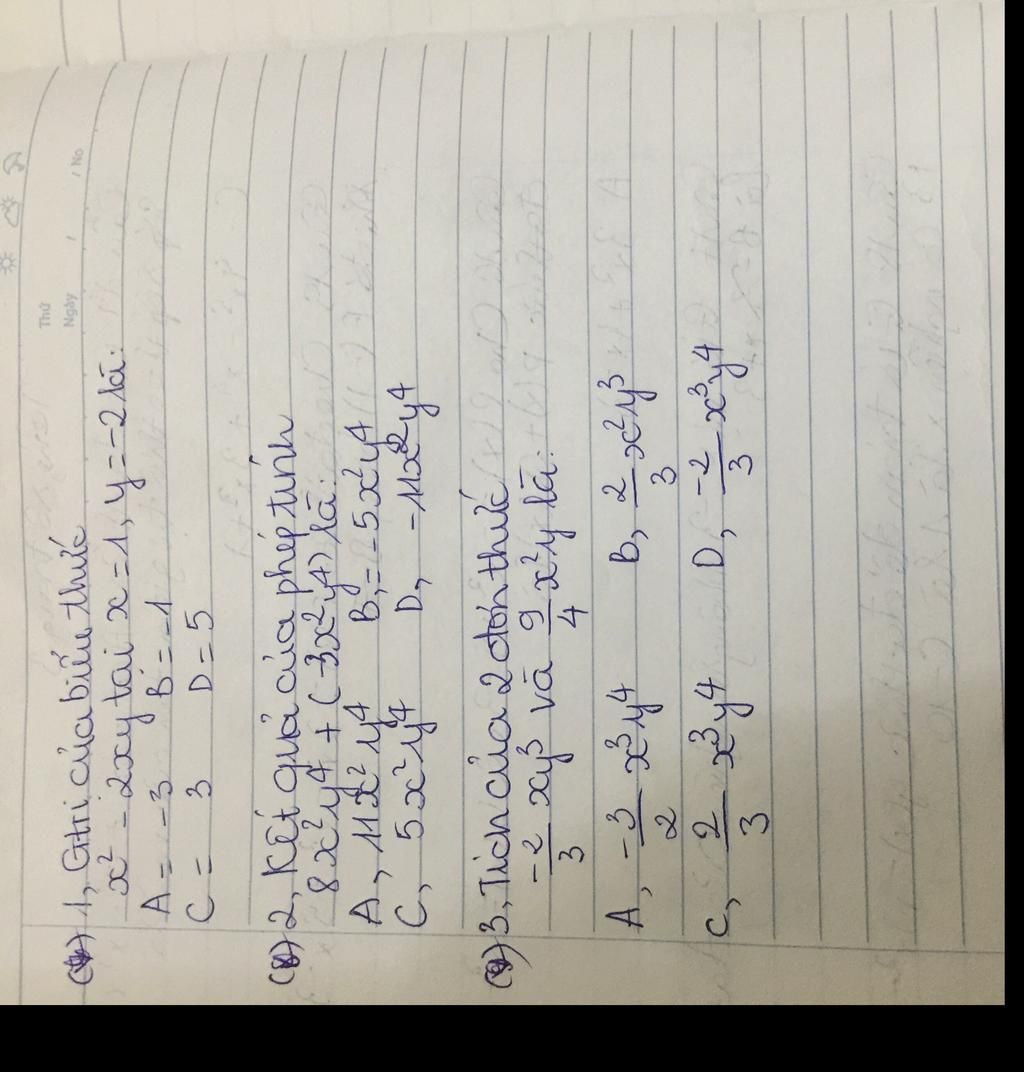 Thứ
Ngày / / No
(7) 1, Gtrị của biểu thức
x² - 2xy tại x = 1, y = -2 là:
A = -3 B = -1
C = 3 D = 5
(8) 2, Kết quả của phép tính
8x²y⁴ + (-3x²y⁴) là:
A, 11x²y⁴ B, = -5x²y⁴
C, 5x²y⁴ D, -11x²y⁴
(9) 3, Tích của 2 đơn thức
-2/3 xy³ và 9/4 x²y là:
A, -3/2 x³y⁴ B, 2/3 x²y³
C, 2/3 x³y⁴ D, -2/3 x³y⁴